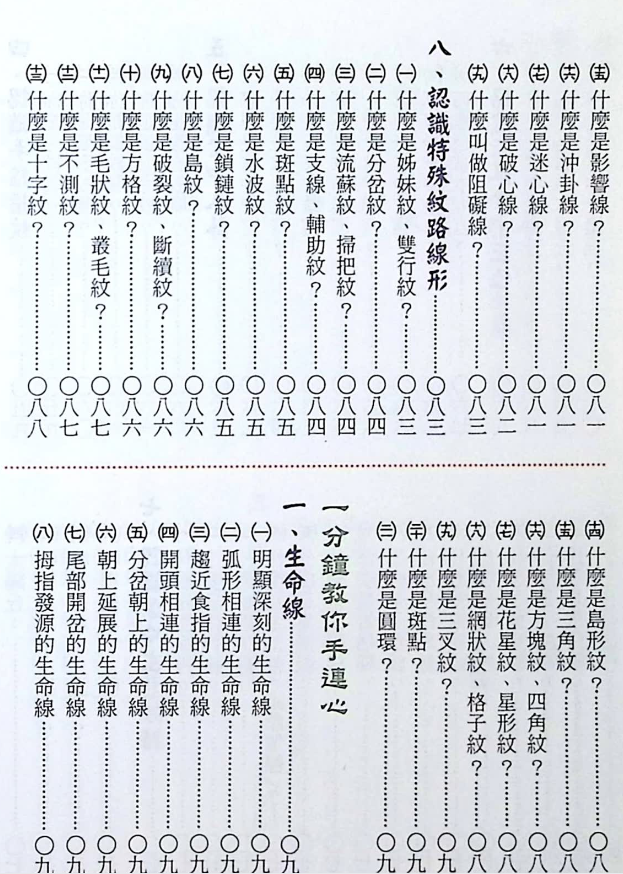 ㈩㈤什麼是影響線？……〇八一
㈩㈥什麼是沖卦線？……〇八一
㈩㈦什麼是迷心線？……〇八一
㈩㈧什麼是破心線？……〇八二
㈩㈨什麼叫做阻礙線？……〇八三
八、認識特殊紋路線形……〇八三
㈠什麼是姊妹紋、雙行紋？……〇八三
㈡什麼是分岔紋？……〇八四
㈢什麼是流蘇紋、掃把紋？……〇八四
㈣什麼是支線、輔助紋？……〇八四
㈤什麼是斑點紋？……〇八五
㈥什麼是水波紋？……〇八五
㈦什麼是鎖鏈紋？……〇八五
㈧什麼是島紋？……〇八六
㈨什麼是破裂紋、斷續紋？……〇八六
㈩什麼是方格紋？……〇八六
㈩㈠什麼是毛狀紋、叢毛紋？……〇八七
㈩㈡什麼是不測紋？……〇八七
㈩㈢什麼是十字紋？……〇八八
㈩㈣什麼是島形紋？……〇八
㈩㈤什麼是三角紋？……〇八
㈩㈥什麼是方塊紋、四角紋？……〇八
㈩㈦什麼是花星紋、星形紋？……〇八
㈩㈧什麼是網狀紋、格子紋？……〇八
㈩㈨什麼是三叉紋？……〇九
㈡㈩什麼是斑點？……〇九
什麼是圓環？……〇九
一分鐘教你手連心
一、生命線……〇九
㈠明顯深刻的生命線……〇九
㈡弧形相連的生命線……〇九
㈢趨近食指的生命線……〇九
㈣開頭相連的生命線……〇九
㈤分岔朝上的生命線……〇九
㈥朝上延展的生命線……〇九
㈦尾部開岔的生命線……〇九
㈧拇指發源的生命線……〇九